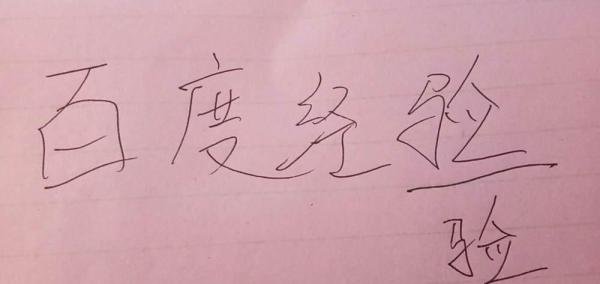 百度经验
验